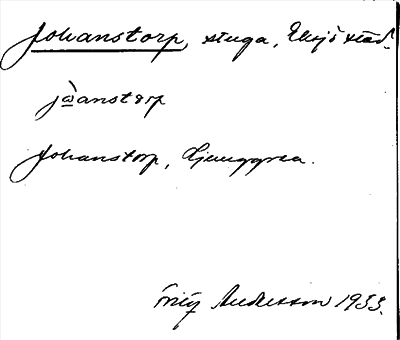 Johanstorp, stuga, Eksjö stad.
jòanstɵrp
Johanstorp, Ljunggren.
Fritz Andersson 1933.